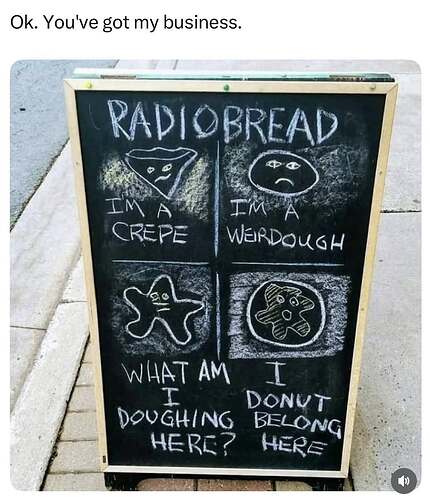 Ok. You've got my business.
RADIOBREAD
IM A
CREPE
IM A
WEIRDOUGH
WHAT AM
I
DOUGHING
HERE?
I
DONUT
BELONG
HERE